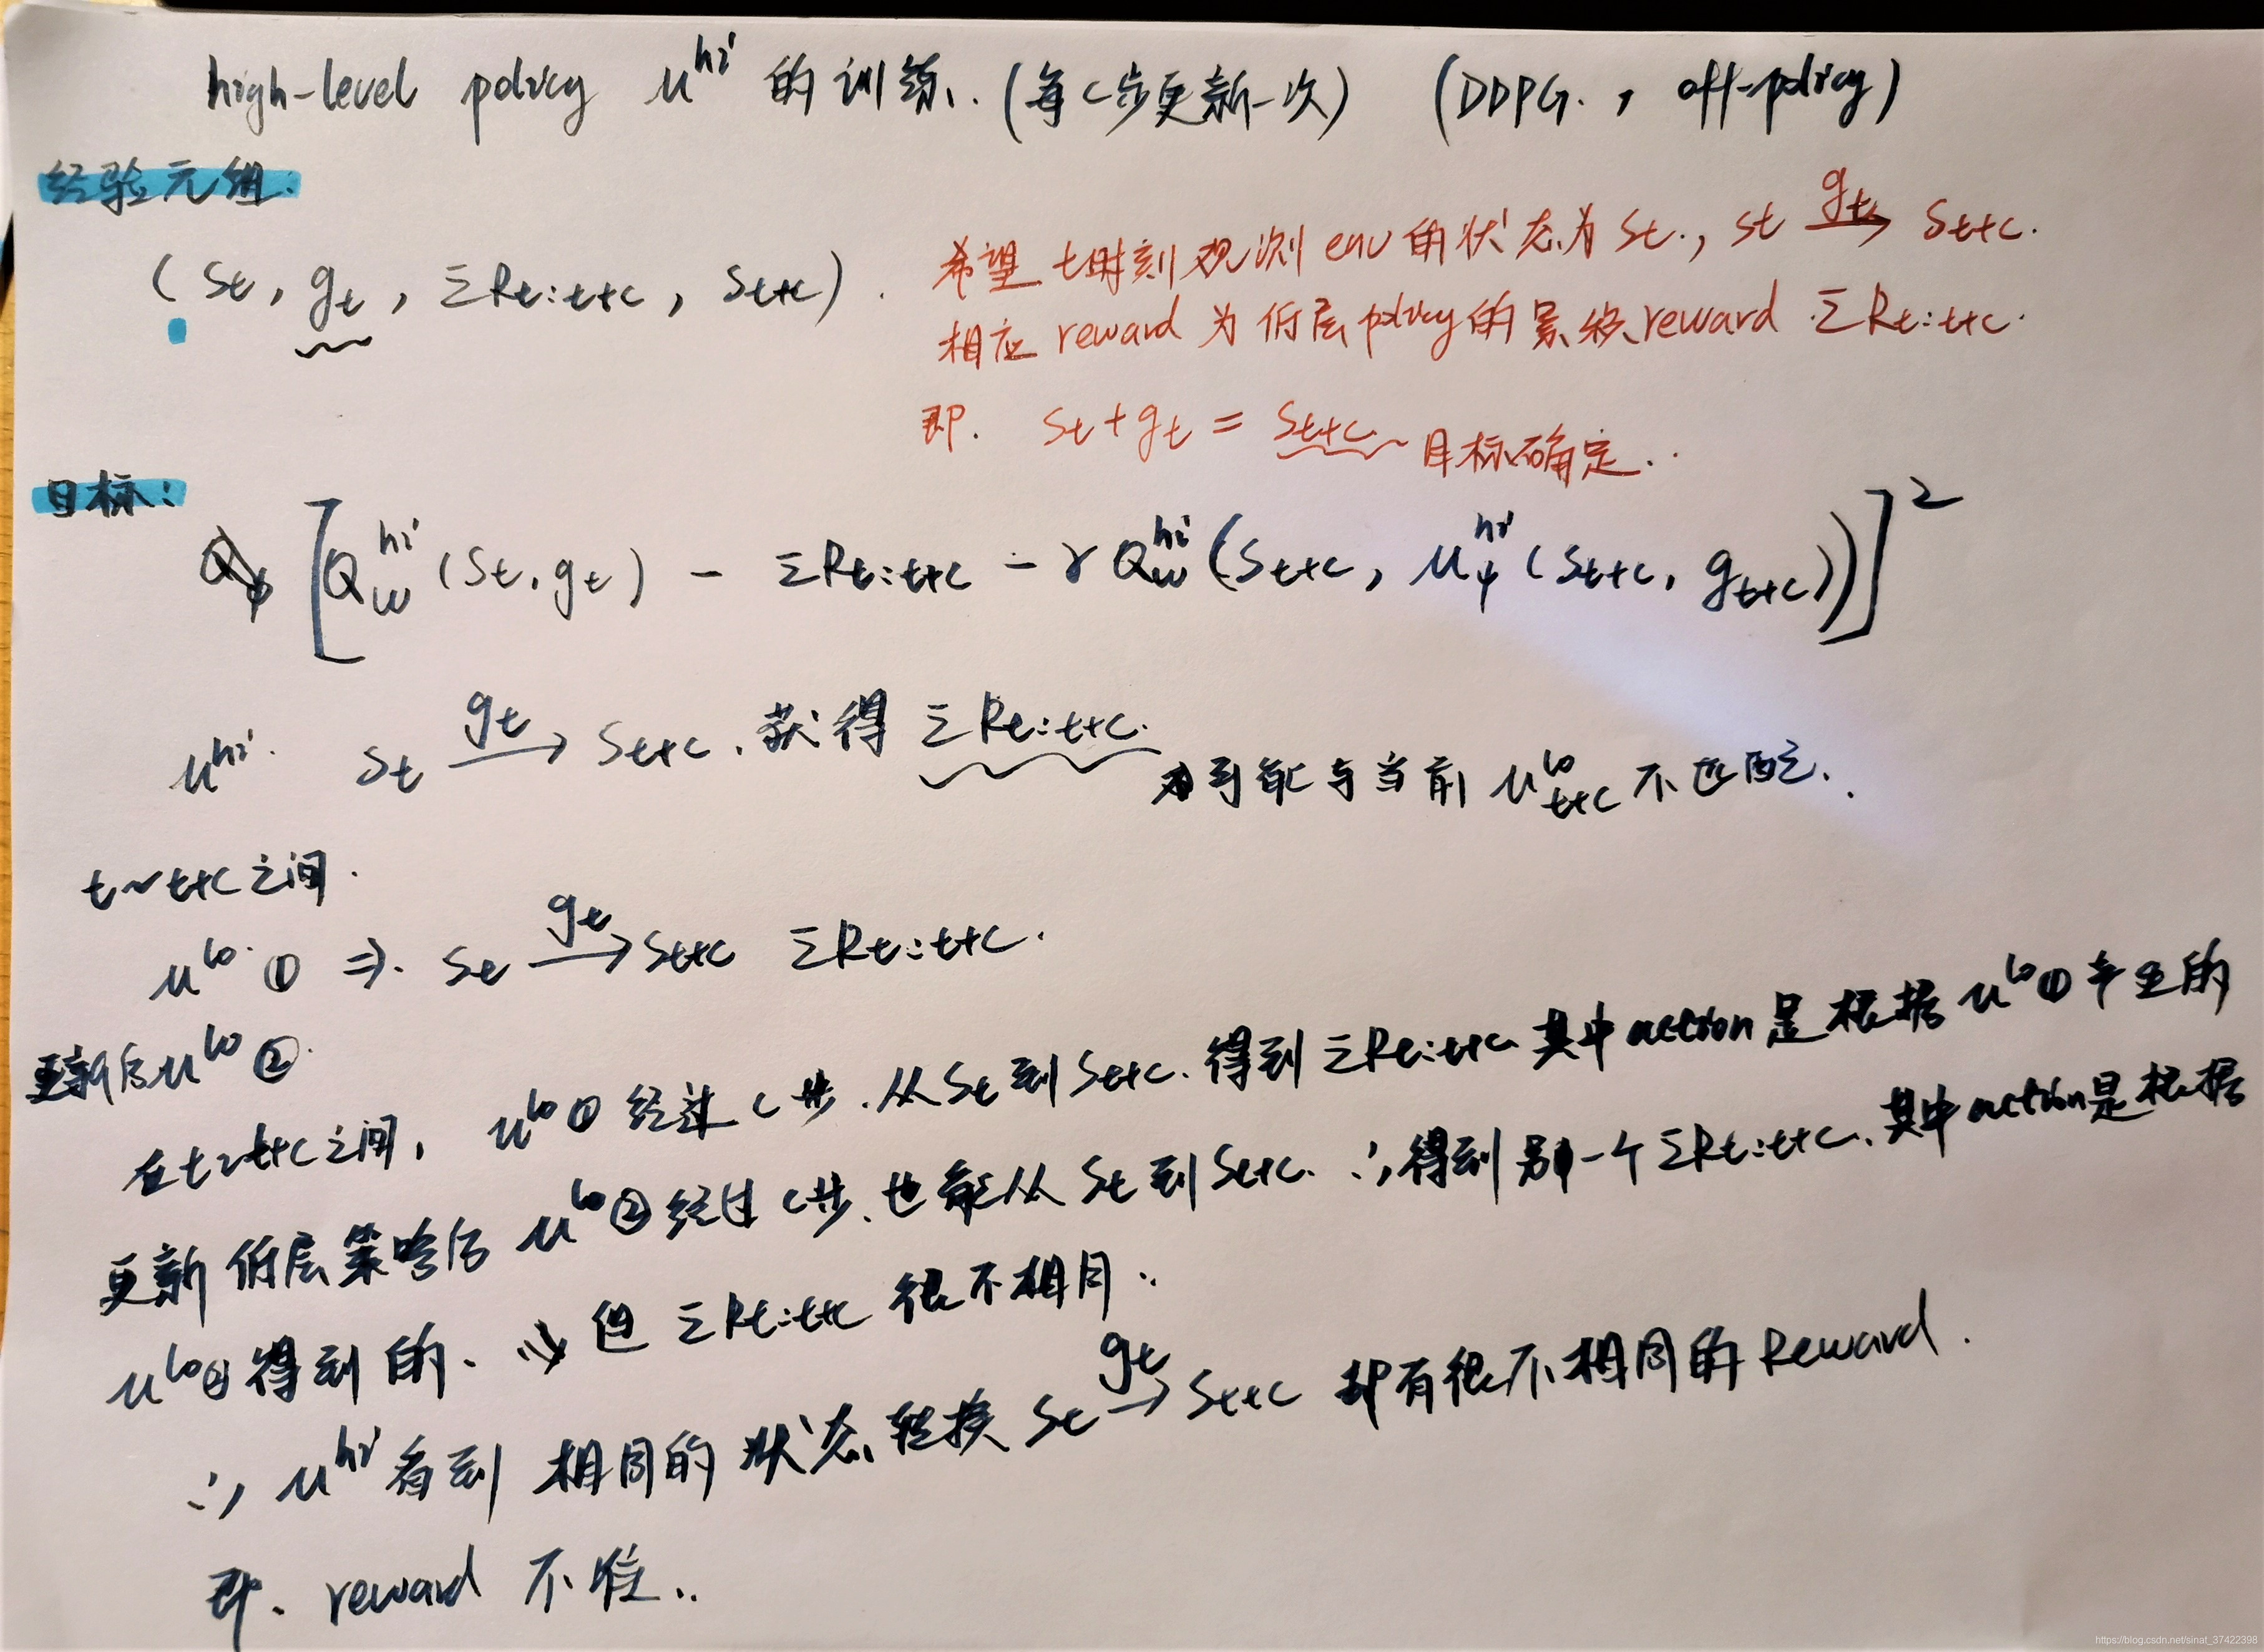 high-level policy μ^hi 的训练. (每c步更新一次) (DDPG. , off-policy)
经验元组:
(St, gt, ΣRt:t+c, St+c).
希望t时刻观测env的状态为St., St →(gt) St+c.
相应reward为低层policy的累积reward ΣRt:t+c.
即. St + gt = St+c 目标确定..
目标:
[Q_w^hi (St, gt) - ΣRt:t+c - γ Q_w^hi (St+c, μ_ψ^hi (St+c, gt+c))]^2
μ^hi. St →(gt) St+c. 获得 ΣRt:t+c.
可能与当前 μ_t+c^lo 不匹配.
t~t+c之间.
μ^lo ① ⇒. St →(gt) St+c ΣRt:t+c.
更新后μ^lo ②.
在t~t+c之间, μ^lo① 经过c步.从St到St+c.得到ΣRt:t+c 其中action是根据μ^lo①产生的
更新低层策略后 μ^lo②经过c步.也能从St到St+c. ∴得到另一个ΣRt:t+c.其中action是根据
μ^lo②得到的. 但ΣRt:t+c 很不相同..
∴ μ^hi看到 相同的状态转换 St →(gt) St+c 却有很不相同的Reward.
即. reward 不准..
https://blog.csdn.net/sinat_37422398